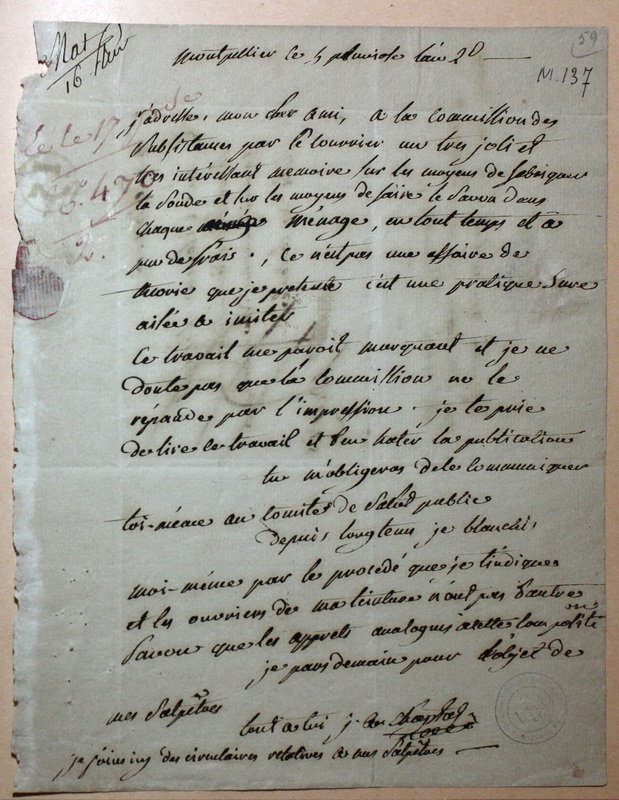 3 Mat
16 
59
Montpellier ce 5 pluviose l'an 2d
M. 137
j'adresse, mon cher ami, a la commission des
le 17
Subsistances par le courrier un tres joli et
tres intéressant memoire sur les moyens de fabriquer
470
la Soude et sur les moyens de faire le Savon dans
chaque ménage, en tout temps et a
2.
peu de frais. , Ce n'est pas une affaire de
théorie que je presente c'est une pratique Sure
aisée a imiter
Ce travail me paroit marquant et je ne
doute pas que la Commission ne le
répande par l'impression. je te prie
de lire le travail et d'en hater la publication
tu m'obligeras de le communiquer
toi-même au comité de Salut public
depuis longtems je blanchis
moi-même par le procédé que je t'indique
et les ouvriers de ma teinture n'ont pas d'autre
Savon que les apprets analogues a cette composition
je pars demain pour l'objet de
mes Salpêtres
tout a toi j. an Chaptal
je joins ici des circulaires relatives a nos Salpêtres